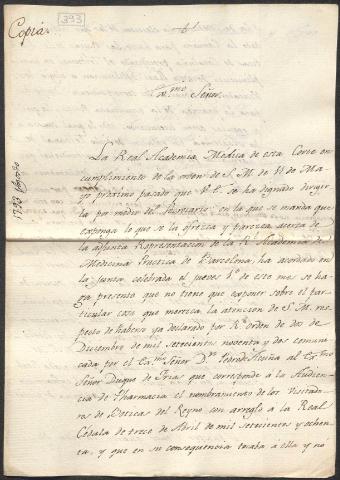 393
Copia.
Exmo Señor.
La Real Academia Medica de esta Corte en
cumplimiento de la orden de S. M. de 11 de Ma
yo próximo pasado que V. E. se ha dignado dirigir
la por medio del Secretario, en la que se manda que
exponga lo que se la ofrezca y parezca acerca de
la adjunta Representacion de la Rl. Academia de
Medicina Practica de Barcelona, ha acordado en
la Junta celebrada el jueves 1º de este mes se ha
ga presente que no tiene que exponer sobre el par
ticular cosa que merezca la atencion de S. M. res
pecto de haberse ya declarado por Rl. Orden de dos de
Diciembre de mil setecientos noventa y dos comuni
cada por el Exmo Señor Dn. Pedro Acuña al Exmo
Señor Duque de Frias que corresponde a la Audien
cia de Pharmacia el nombramiento de los Visitado
res de Boticas del Reyno con arreglo a la Real
Cédula de trece de Abril de mil setecientos y ochen
ta, y que en su consequencia tocaba á ella y no